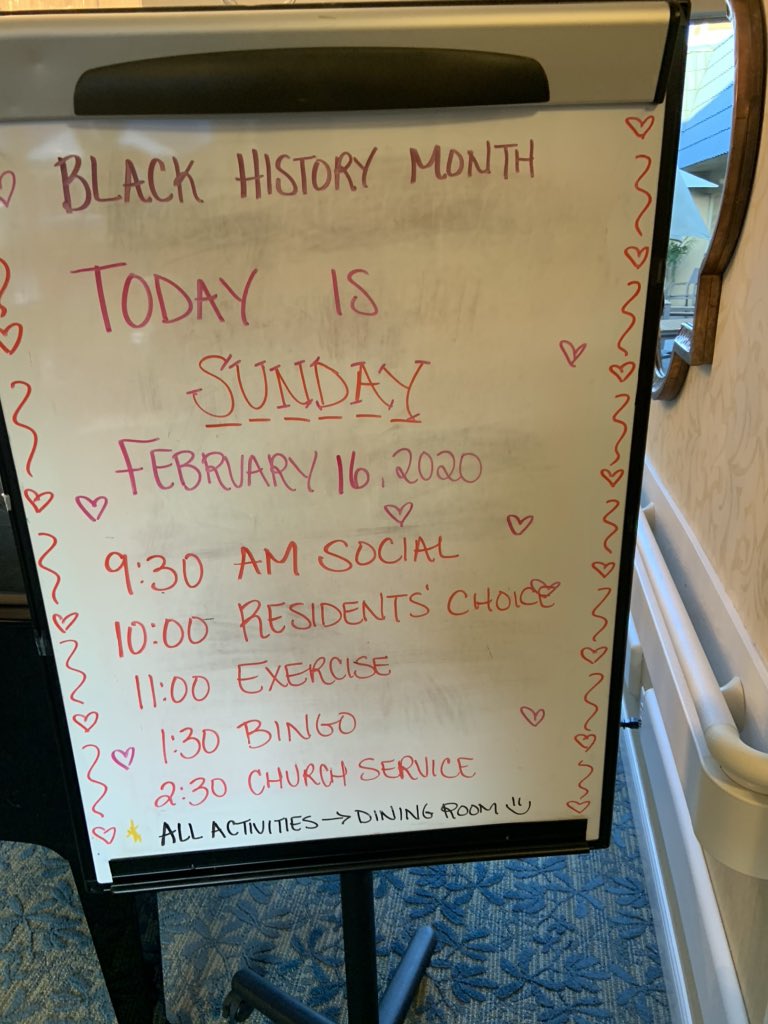 BLACK HISTORY MONTH
TODAY IS
SUNDAY
FEBRUARY 16, 2020
9:30 AM SOCIAL
10:00 RESIDENTS' CHOICE
11:00 EXERCISE
1:30 BINGO
2:30 CHURCH SERVICE
* ALL ACTIVITIES → DINING ROOM